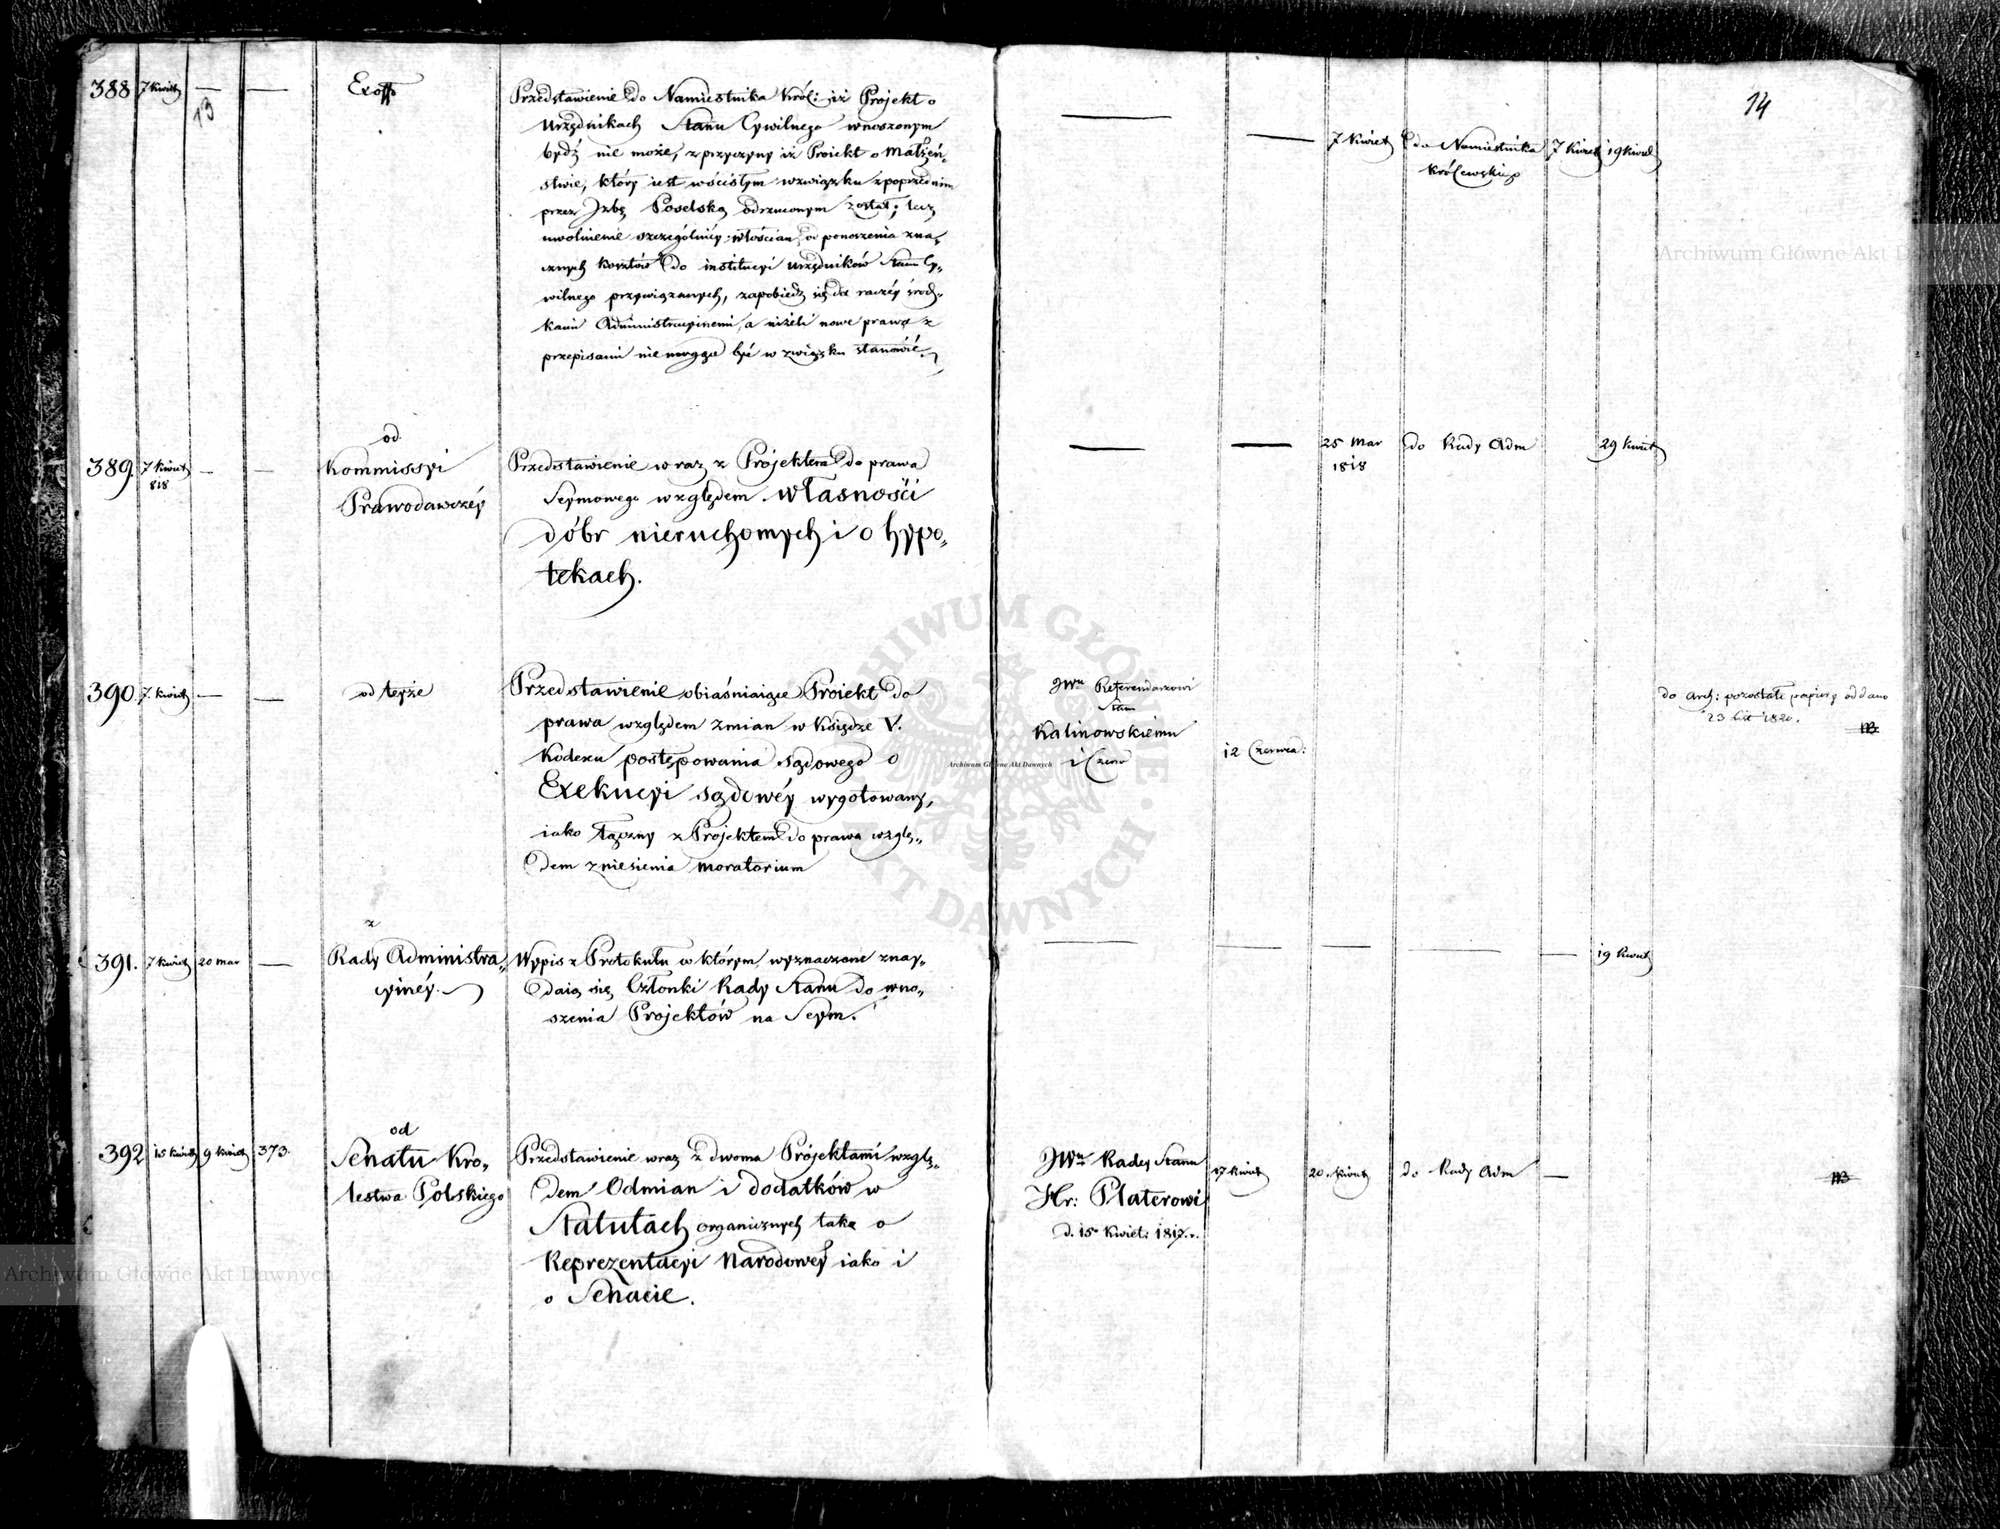 13
14
388
7 Kwiet
—
—
Exoffo
Przedstawienie do Namiestnika Król: iż Projekt o
Urzędnikach Stanu Cywilnego wnoszonym
bydź nie może, z przyczyny iż Proiekt o Małżeń-
stwie, który iest w ścisłym związku z poprzednim
przez Izbę Poselską odrzuconym został; lecz
uwolnienie szczególniey włościan od ponoszenia zna-
cznych kosztów do instytucyi urzędników Stanu Cy-
wilnego przywiązanych, zapobiedz się da raczéy środ-
kami Administracyinemi, a niżeli nowe prawa z
przepisami nie mogące być w związku stanowić.
—
—
7 Kwiet
do Namiestnika
Królewskiego
7 Kwiet
19 Kwiet
389.
7 Kwiet
818
—
—
od
Kommissyi
Prawodawczéy
Przedstawienie wraz z Projektem do prawa
Seymowego względem własności
dóbr nieruchomych i o hypo-
tekach.
—
—
25 Mar
1818
do Rady Adm
29 Kwiet
390.
7. Kwiet
—
—
od teyże
Przedstawienie obiaśniaiące Proiekt do
prawa względem zmian w Księdze V.
Kodexu postępowania sądowego o
Exekucyi sądowéy wygotowany,
iako łączny z Projektem do prawa wzglę-
dem zniesienia moratorium
JWu Referendarzowi
Stanu
Kalinowskiemu
12 Czerwca:
do Arch: pozostałe papiery oddano
23 1820.
391.
7 Kwiet
20 Mar
—
z
Rady Administra-
cyinéy.
Wypis z Protokułu w którym wyznaczone znay-
daią się Członki Rady Stanu do wno-
szenia Projektów na Seym.
—
—
—
—
—
19 Kwiet
392
15 Kwiet
9 Kwiet
373.
od
Senatu Kro-
lestwa Polskiego
Przedstawienie wraz z dwoma Projektami wzglę-
dem Odmian i dodatków w
Statutach organicznych tak o
Reprezentacyi Narodowey iako i
o Senacie.
JWu Radcy Stanu
Hr: Platerowi
d. 15 Kwiet: 181
17 Kwiet
20. Kwiet
do Rady Adm
—
Archiwum Główne Akt Dawnych
Archiwum Główne Akt Dawnych
Archiwum Główne Akt Dawnych
ARCHIWUM GŁÓWNE AKT DAWNYCH